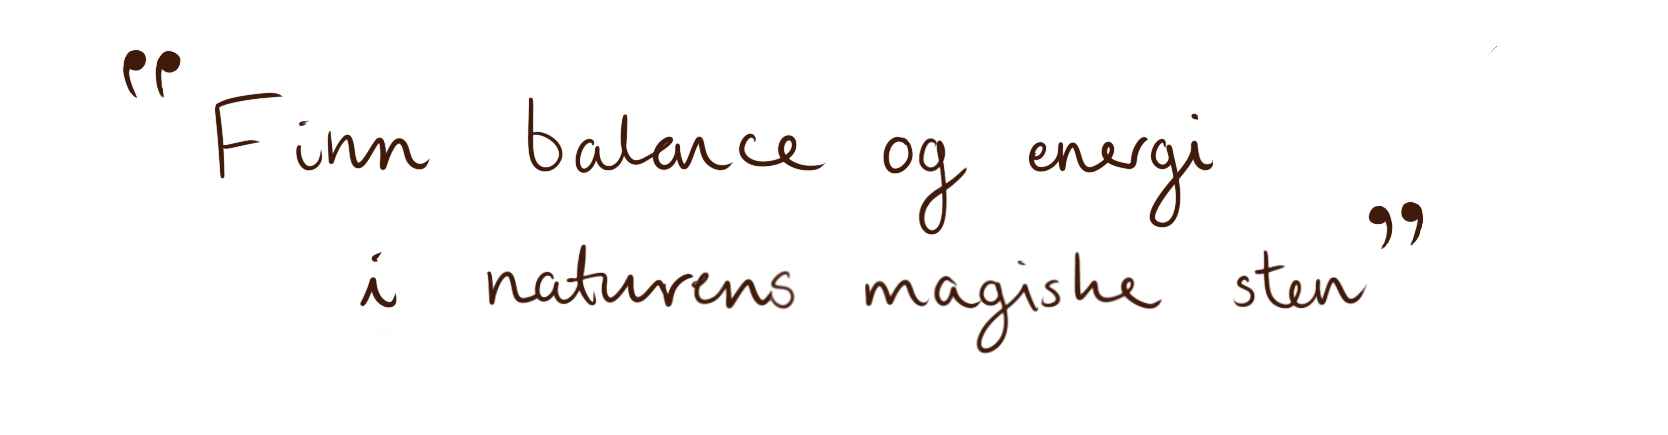 “Finn balance og energi
i naturens magiske sten”